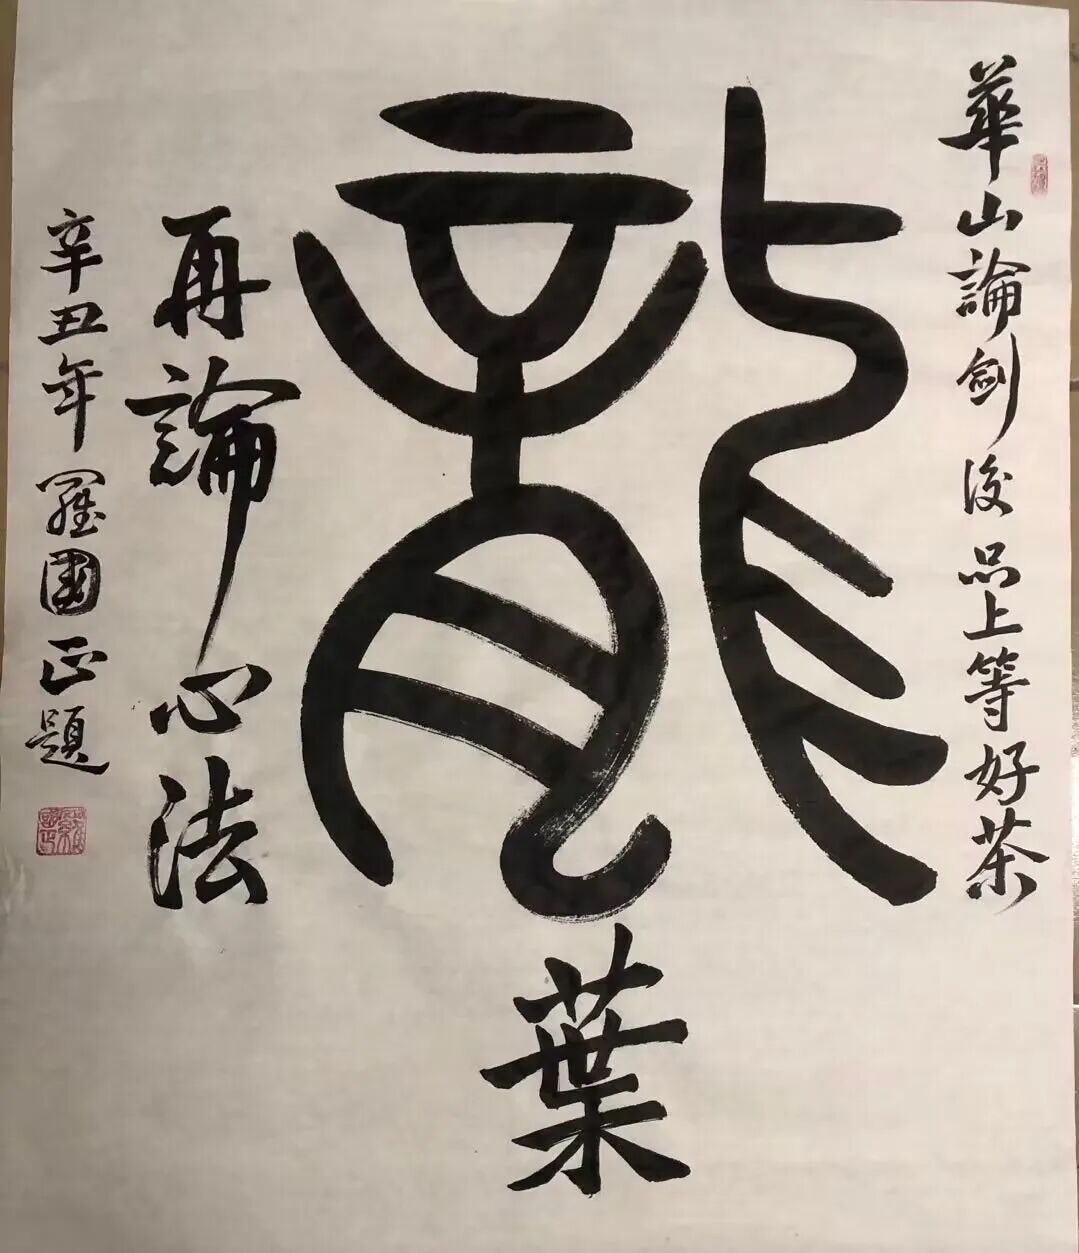 華山論劍後品上等好茶
龍
葉
再論心法
辛丑年羅國正題